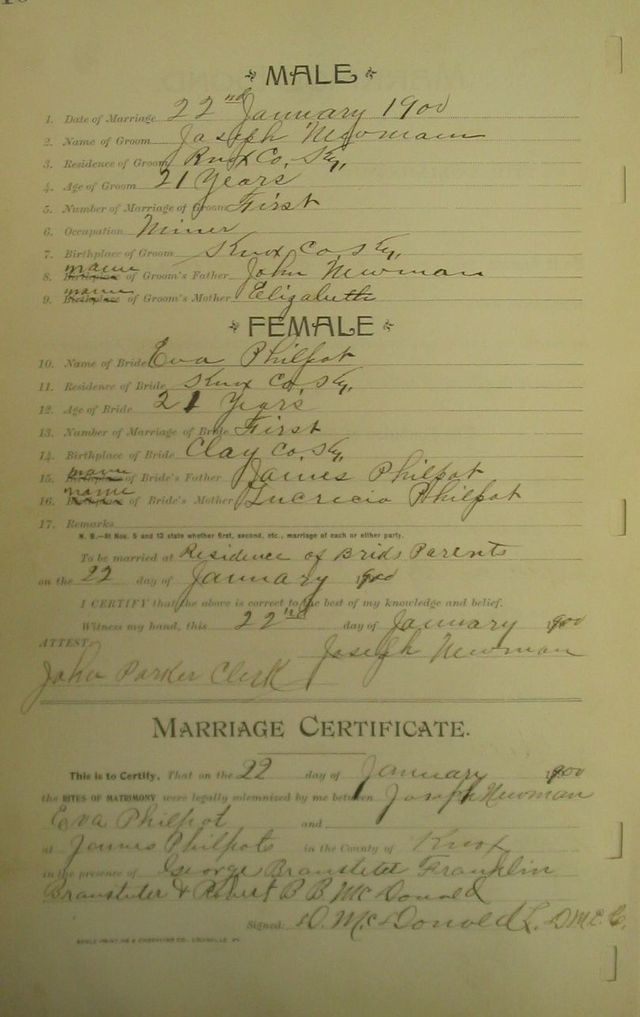 MALE
1. Date of Marriage 22nd January 1900
2. Name of Groom Joseph Newman
3. Residence of Groom Knox Co, Ky,
4. Age of Groom 21 Years
5. Number of Marriage of Groom First
6. Occupation Miner
7. Birthplace of Groom Knox Co, Ky,
name
8. Birthplace of Groom's Father John Newman
name
9. Birthplace of Groom's Mother Elizabeth
FEMALE
10. Name of Bride Eva Philpot
11. Residence of Bride Knox Co, Ky,
12. Age of Bride 21 Years
13. Number of Marriage of Bride First
14. Birthplace of Bride Clay Co, Ky,
name
15. Birthplace of Bride's Father James Philpot
name
16. Birthplace of Bride's Mother Lucrecia Philpot
17. Remarks
N. B.—At Nos. 5 and 13 state whether first, second, etc., marriage of each or either party.
To be married at Residence of Brids Parents
on the 22 day of January 1900
I CERTIFY that the above is correct to the best of my knowledge and belief.
Witness my hand, this 22nd day of January 1900
ATTEST: Joseph Newman
John Parker Clerk
MARRIAGE CERTIFICATE.
This is to Certify, That on the 22 day of January 1900
the RITES OF MATRIMONY were legally solemnized by me between Joseph Newman
Eva Philpot and
at James Philpots in the County of Knox
in the presence of George Branstetet Franklin
Branstuter & Robert B B McDonald
Signed: D. McDonald L. D M E C.